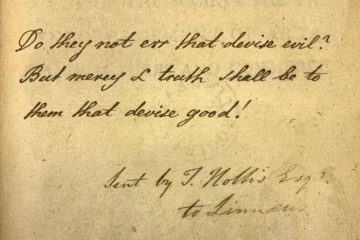 Do they not err that devise evil?
But mercy & truth shall be to
them that devise good!
Sent by T. Hollis Esqr.
to Linnæus